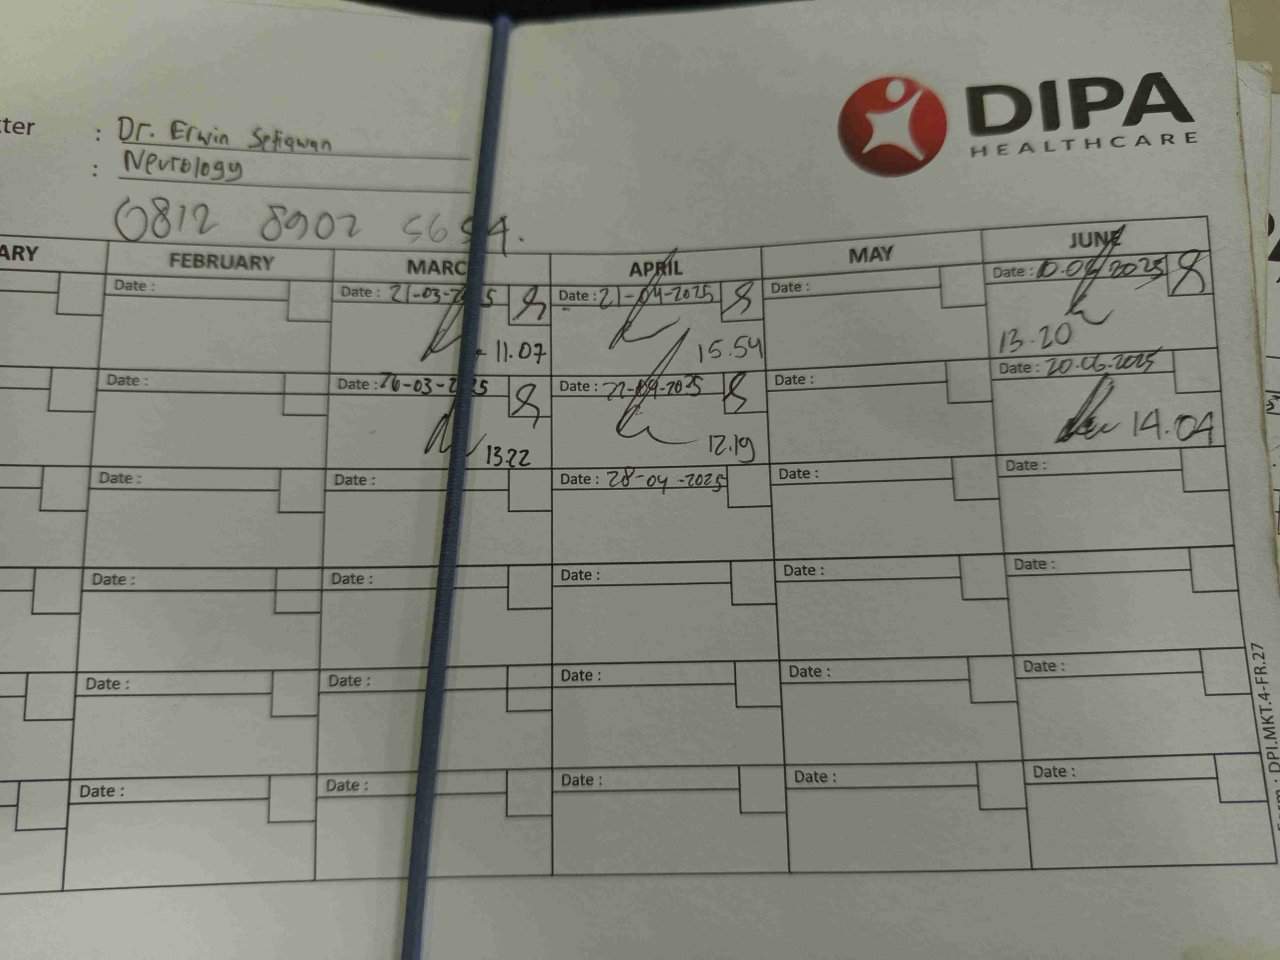 DIPA
HEALTHCARE
: Dr. Erwin Setiawan
: Neurology
0812 8902 5654.
ARY FEBRUARY MARC APRIL MAY JUNE
Date : Date : 21-03-2025 Date : 21-04-2025 Date : Date : 10.06.2025
11.07 15.54 13.20
Date : Date : 26-03-2025 Date : 22-04-2025 Date : Date : 20.06.2025
13.22 12.19 14.04
Date : Date : Date : 28-04-2025 Date : Date :
Date : Date : Date : Date : Date :
Date : Date : Date : Date : Date :
Date : Date : Date : Date : Date :
DPI.MKT.4-FR.27